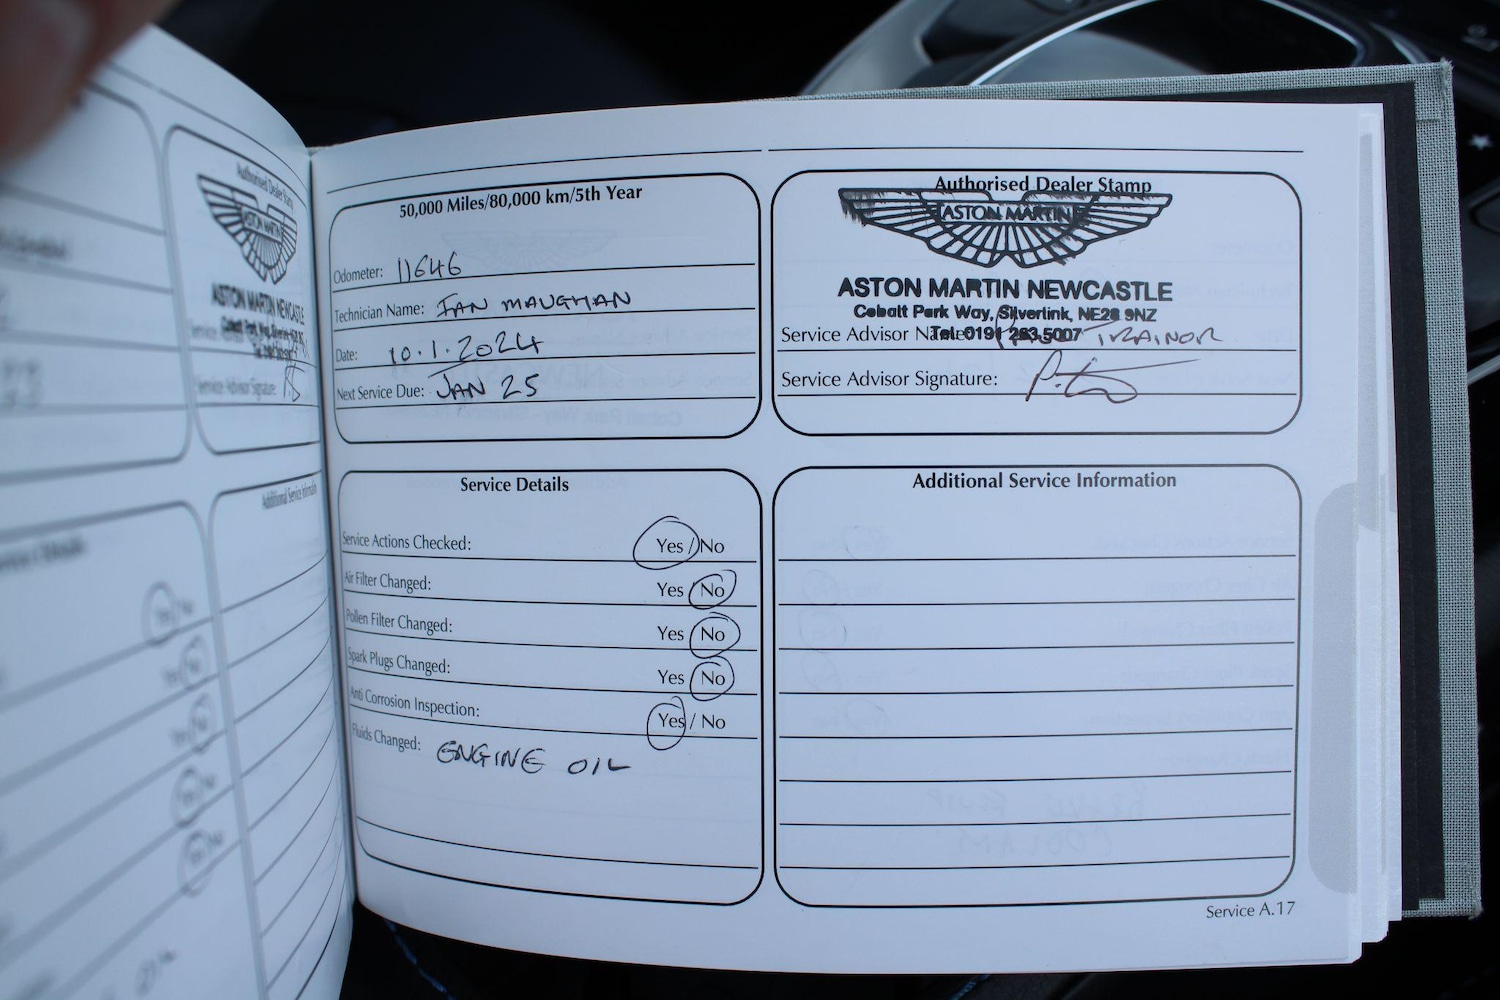 Authorised Dealer Stamp
ASTON MARTIN
ASTON MARTIN NEWCASTLE
Additional Service
50,000 Miles/80,000 km/5th Year
Odometer: 11646
Technician Name: IAN MAUGHAN
Date: 10.1.2024
Next Service Due: JAN 25
Authorised Dealer Stamp
ASTON MARTIN
ASTON MARTIN NEWCASTLE
Cobalt Park Way, Silverlink, NE28 9NZ
Tel: 0191 263 5007
Service Advisor Name: TRAINOR
Service Advisor Signature:
Service Details
Service Actions Checked: Yes / No
Air Filter Changed: Yes / No
Pollen Filter Changed: Yes / No
Spark Plugs Changed: Yes / No
Anti Corrosion Inspection: Yes / No
Fluids Changed: ENGINE OIL
Additional Service Information
Service A.17